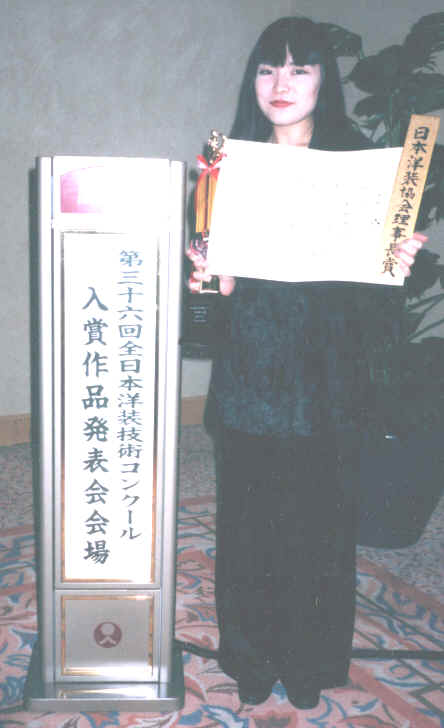 第三十六回全日本洋装技術コンクール
入賞作品発表会会場
日本洋装協会理事長賞